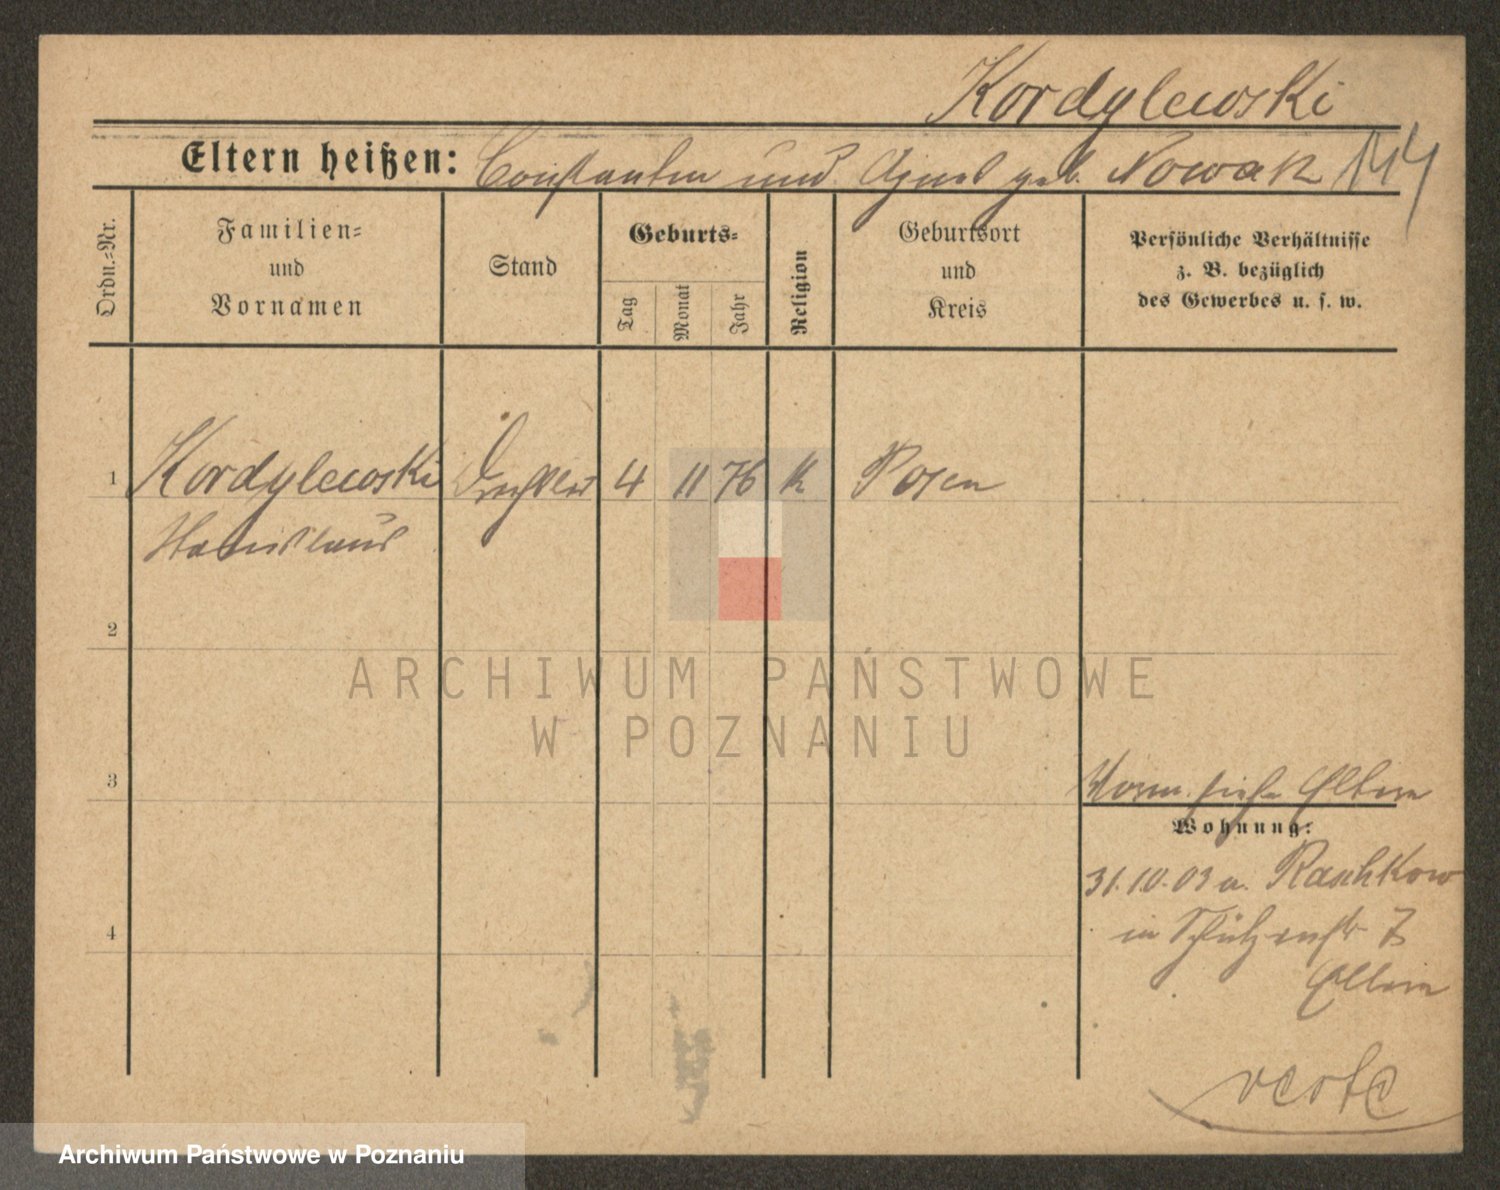 Kordylewski
Eltern heißen: Constantin und Agnes geb. Nowak 144
Ordn.-Nr.
Familien-
und
Vornamen
Stand
Geburts-
Tag
Monat
Jahr
Religion
Geburtsort
und
Kreis
Persönliche Verhältnisse
z. B. bezüglich
des Gewerbes u. s. w.
1 Kordylewski 4 11 76 k Posen
Stanislaus
2
ARCHIWUM PAŃSTWOWE
W POZNANIU
3
siehe Eltern
Wohnung:
31.10.03 a. Raschkow
4
in Schützenstr 7
Eltern
verte
Archiwum Państwowe w Poznaniu